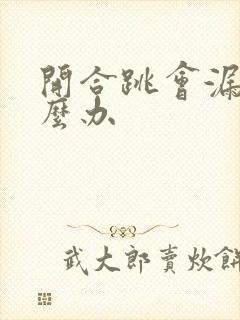 開合跳會漏
麼办
武大郎賣炊餅